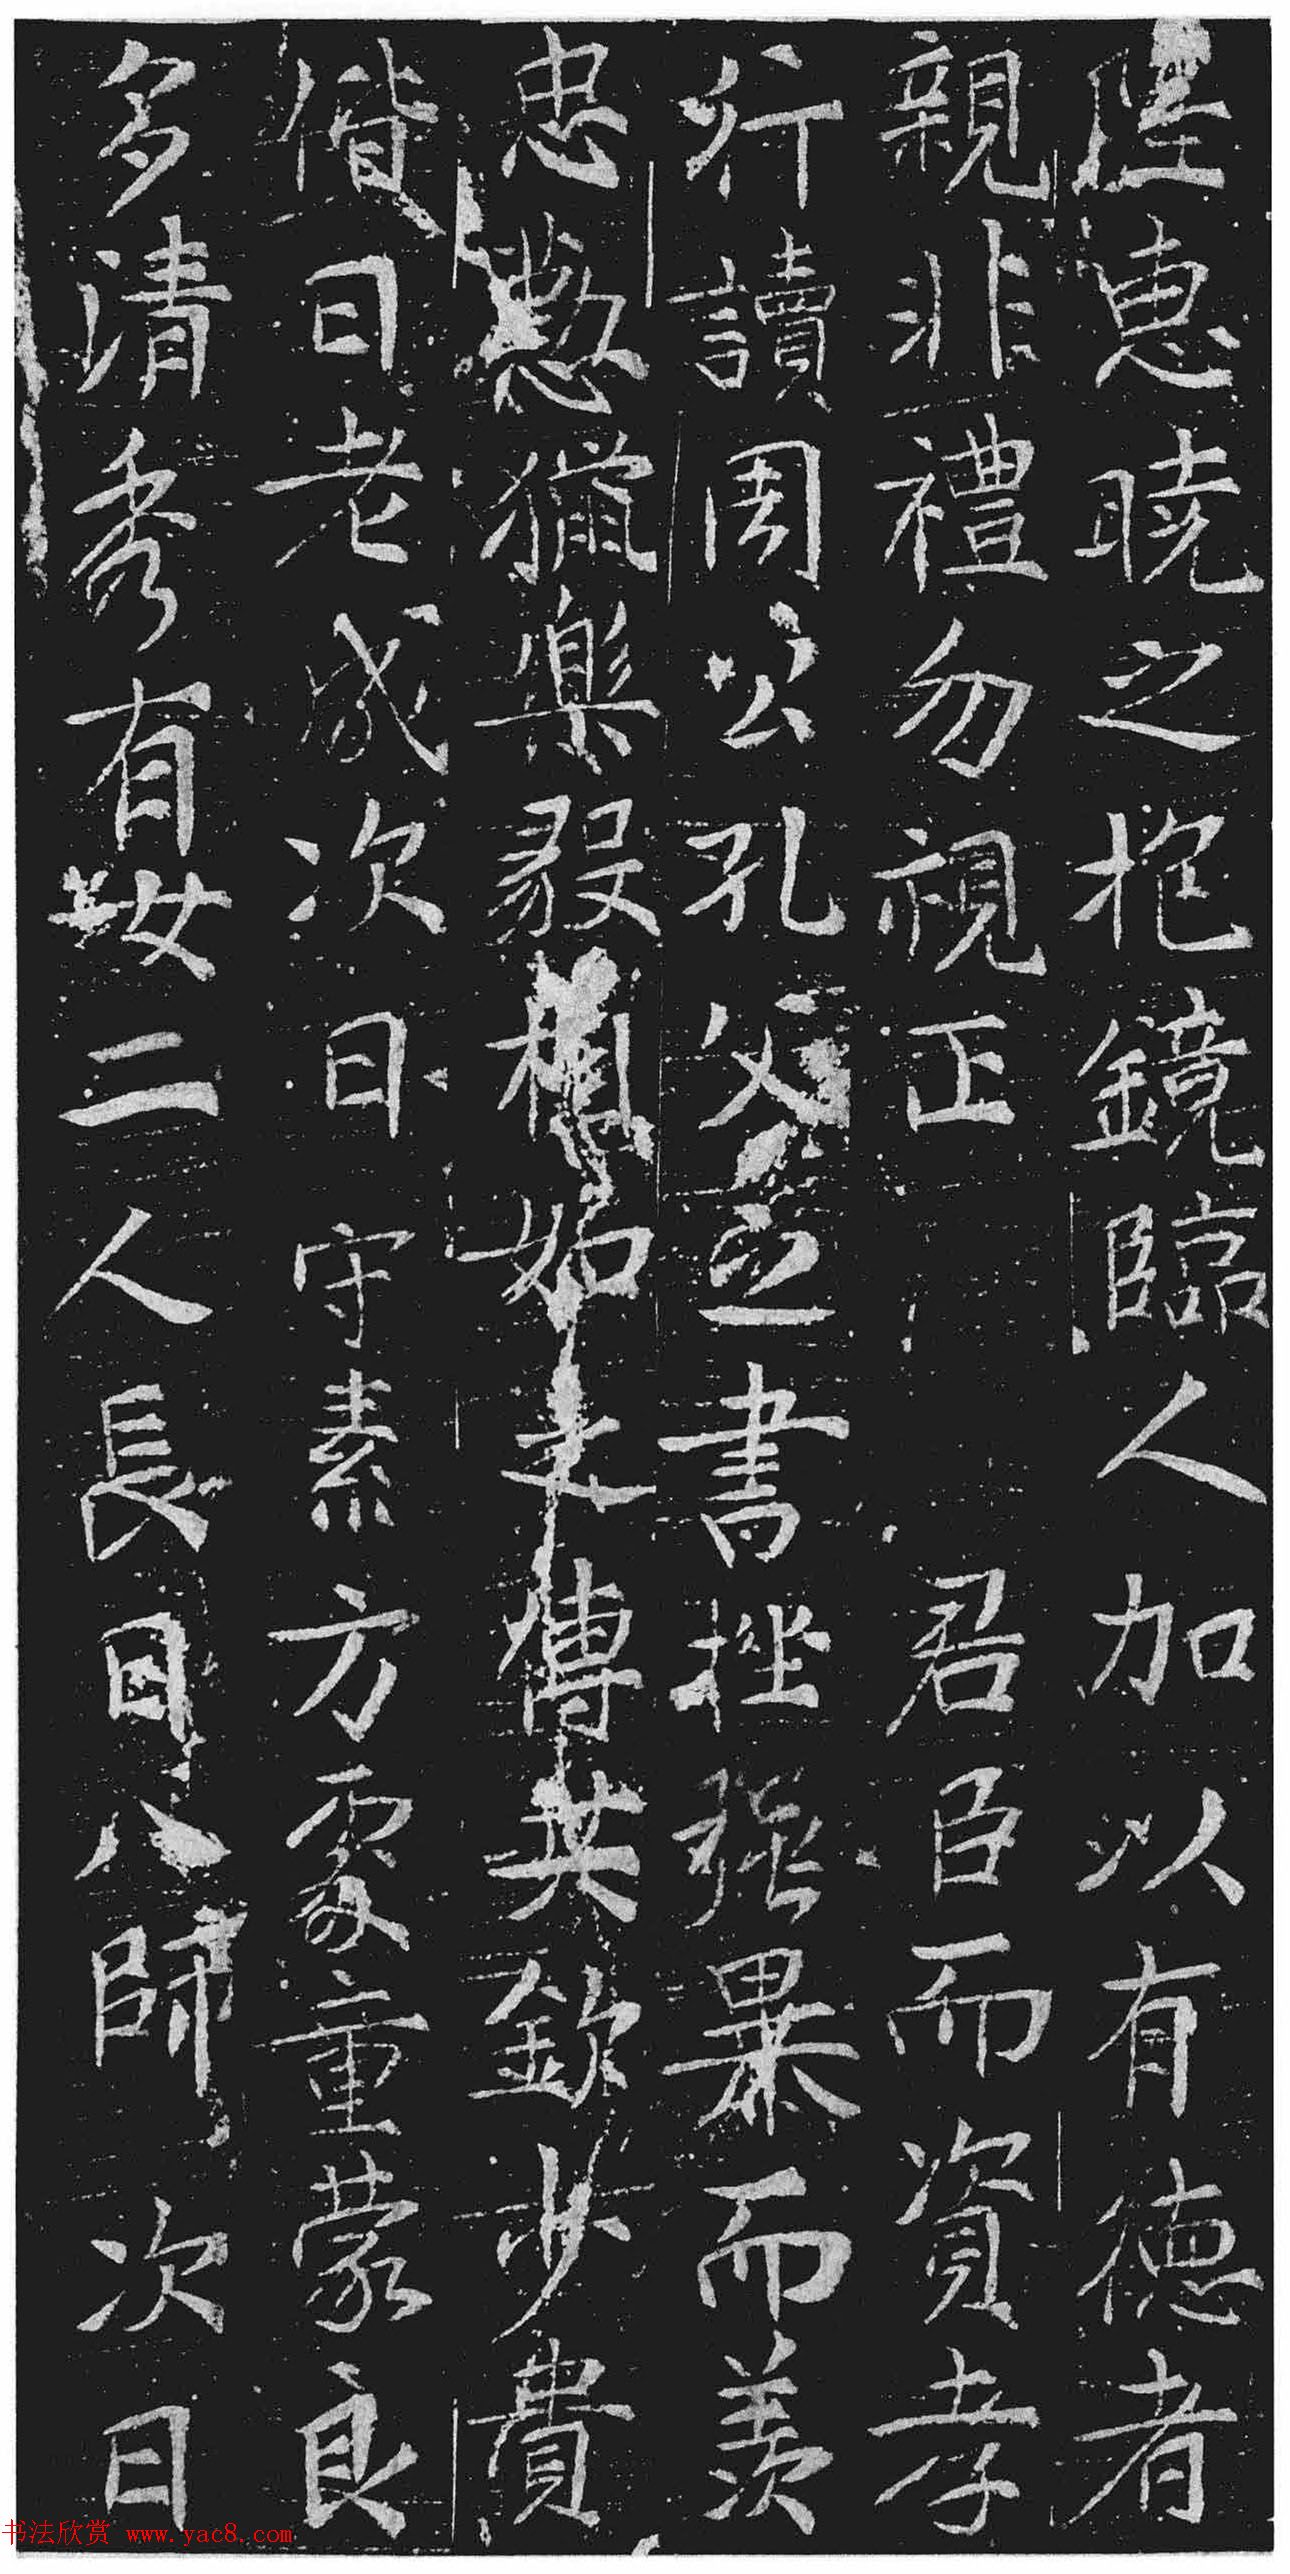 陞惠曉之枹鏡臨人加以有德者
親非禮勿視正 君臣而資孝
行讀周公孔父之書挫強暴而羨
忠懃獵樂毅相如之傳英欽步貴
偕曰老成次曰守素方處童蒙良
多清秀有女二人長曰八師次曰
书法欣赏 www.yac8.com